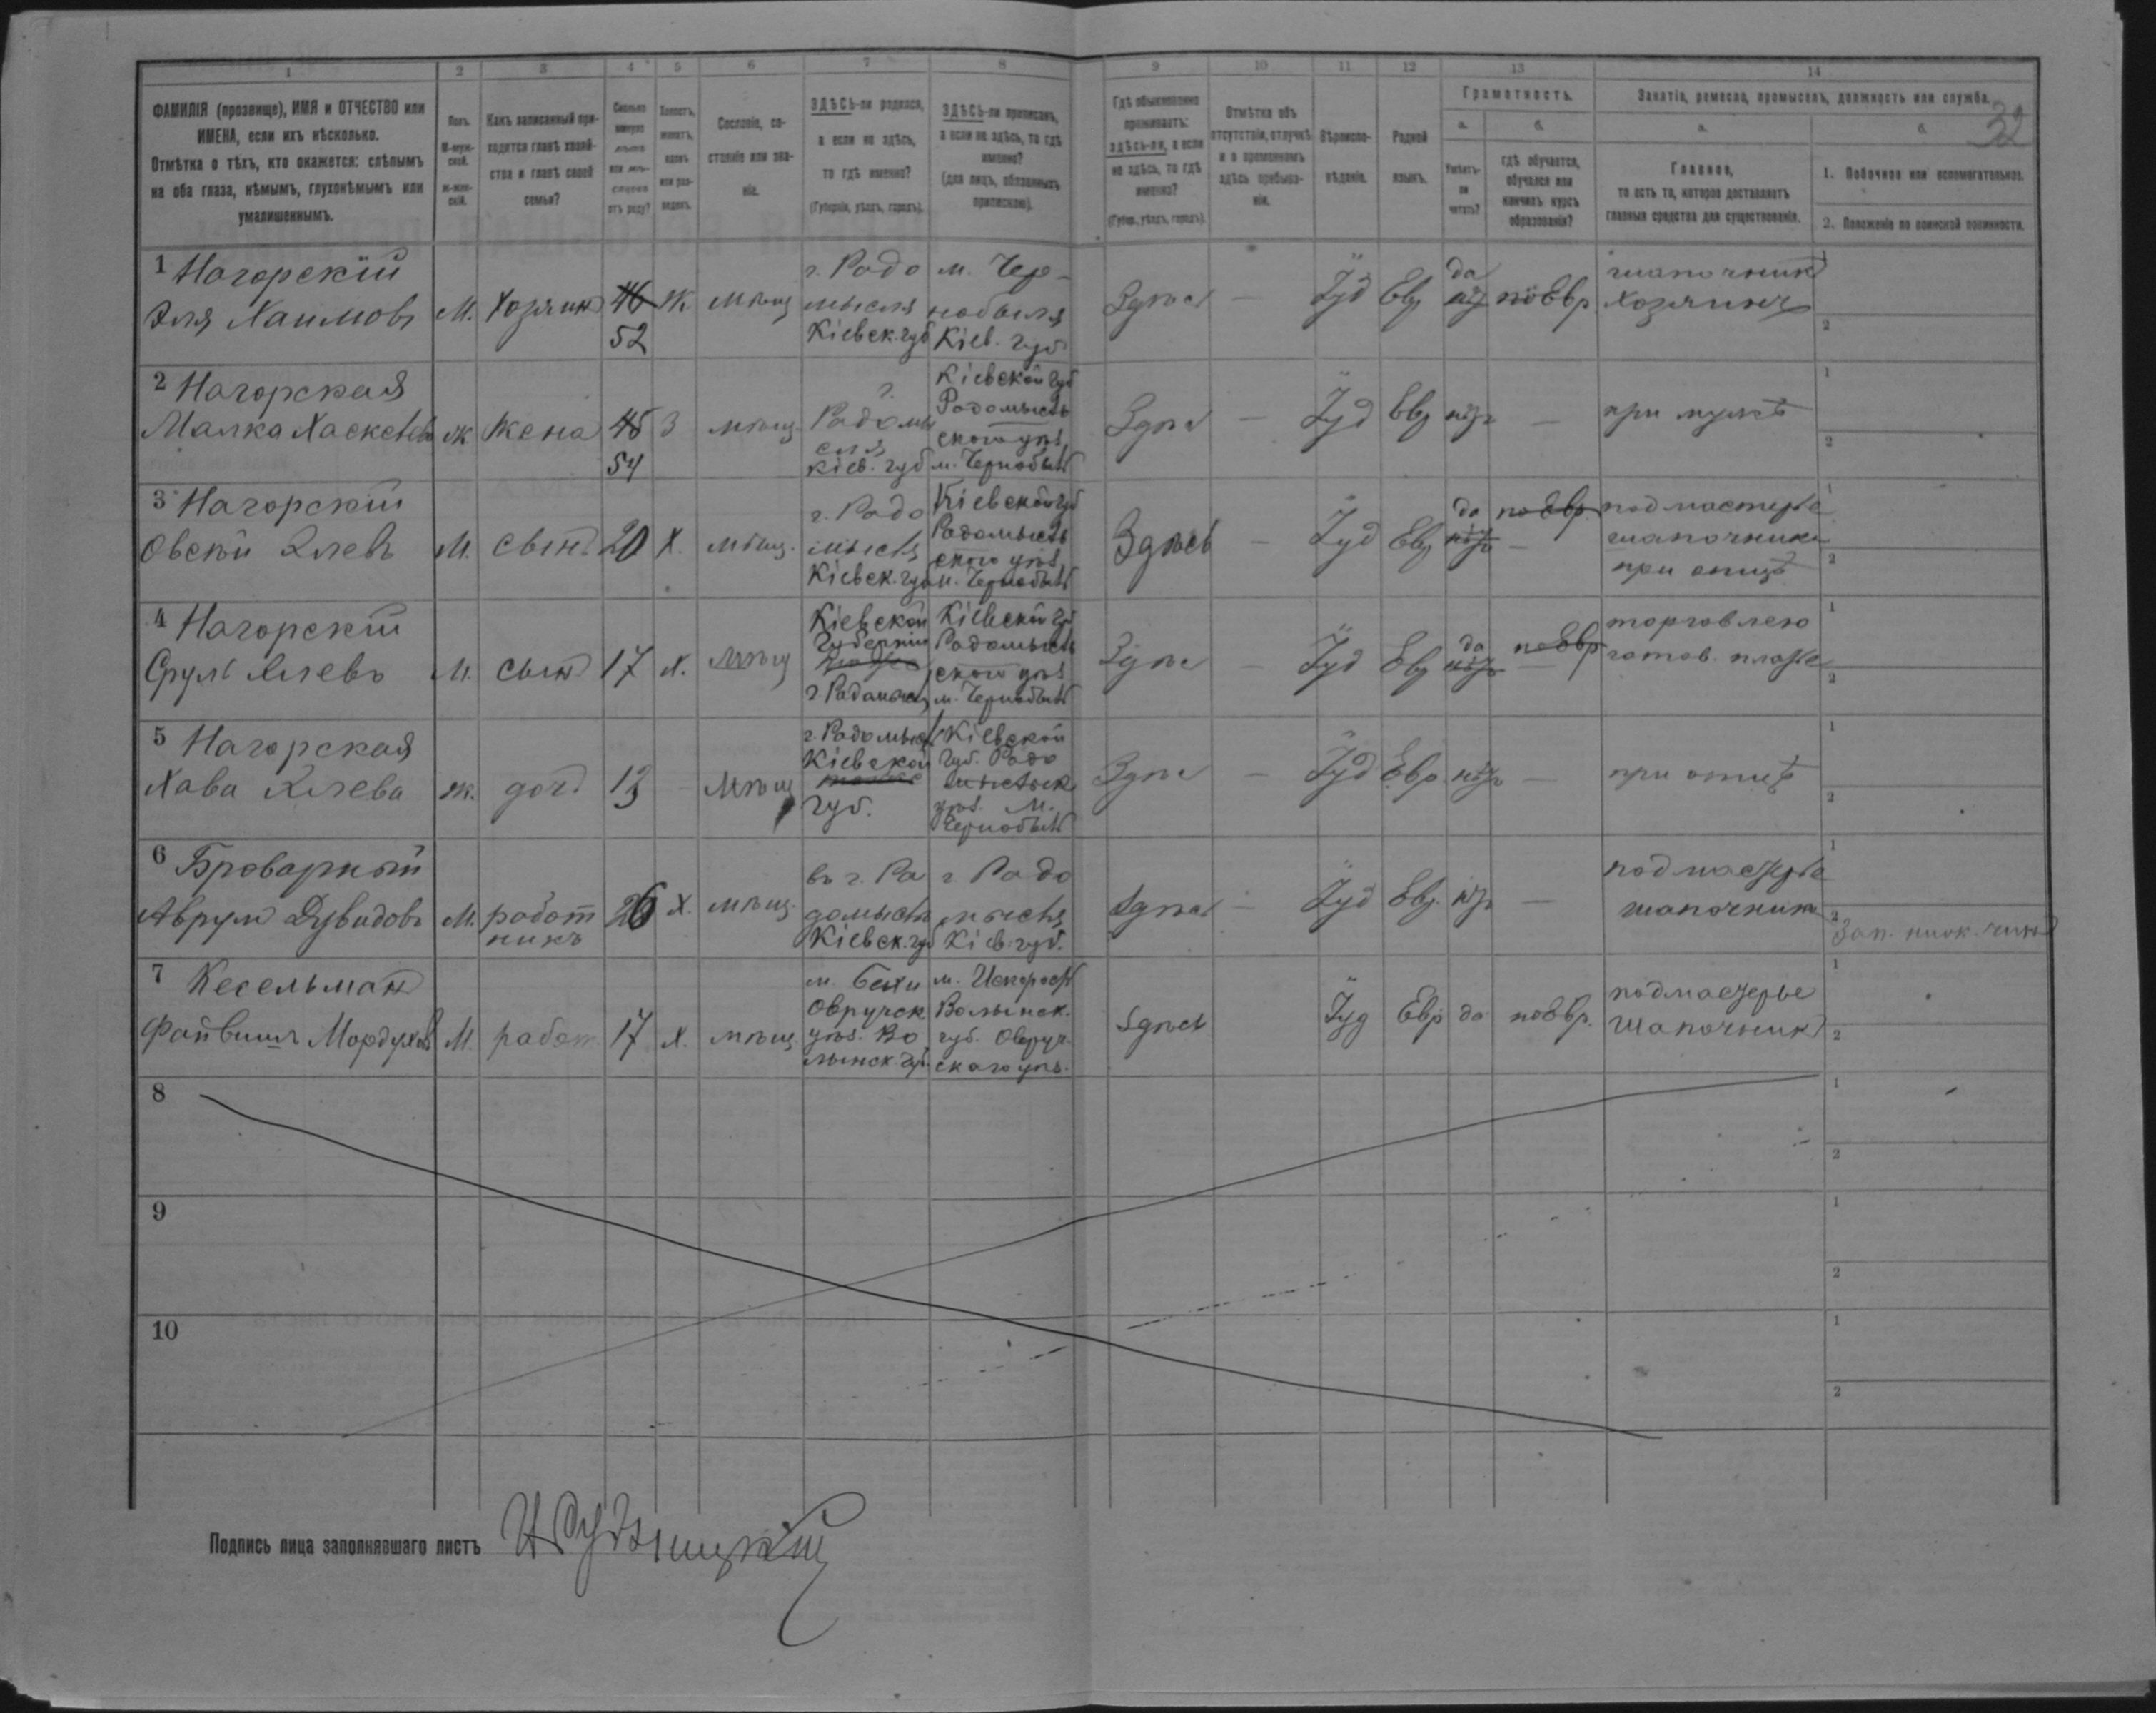 1 2 3 4 5 6 7 8 9 10 11 12 13 14
32
ФАМИЛІЯ (прозвище), ИМЯ и ОТЧЕСТВО или
ИМЕНА, если ихъ нѣсколько.
Отмѣтка о тѣхъ, кто окажется: слѣпымъ
на оба глаза, нѣмымъ, глухонѣмымъ или
умалишеннымъ.
Полъ.
М-муж-
ской.
ж-жен-
скій.
Какъ записанный при-
ходится главѣ хозяй-
ства и главѣ своей
семьи?
Сколько
минуло
лѣтъ
или мѣ-
сяцевъ
отъ роду?
Холостъ,
женатъ,
вдовъ
или раз-
веденъ.
Сословіе, со-
стояніе или зва-
ніе.
ЗДѢСЬ-ли родился,
а если не здѣсь,
то гдѣ именно?
(Губернія, уѣздъ, городъ).
ЗДѢСЬ-ли приписанъ,
а если не здѣсь, то гдѣ
именно?
(для лицъ, обязанныхъ
припискою).
Гдѣ обыкновенно
проживаетъ:
здѣсь-ли, а если
не здѣсь, то гдѣ
именно?
(Губер., уѣздъ, городъ).
Отмѣтка объ
отсутствіи, отлучкѣ
и о временномъ
здѣсь пребыва-
ніи.
Вѣроиспо-
вѣданіе.
Родной
языкъ.
Грамотность.
а.
Умѣетъ-
ли
читать?
б.
гдѣ обучается,
обучался или
кончилъ курсъ
образованія?
Занятіе, ремесло, промыселъ, должность или служба.
а.
Главное,
то есть то, которое доставляетъ
главныя средства для существованія.
б.
1. Побочное или вспомогательное.
2. Положеніе по воинской повинности.
1 Нагорскій
Эля Хаимовъ
М.
Хозяинъ
46
52
Ж.
мѣщ
г. Радо
мысля
Кіевск. губ
м. Чер-
нобыля
Кіев. губ
Здѣсь
—
Іуд
Евр
да
нѣтъ
по Евр
шапочникъ
хозяинъ
1
2
2 Нагорская
Малка
ж
жена
45
54
З
мѣщ.
г.
Радомы
сля
Кіев. губ
Кіевской губ
Радомысль
ского уѣз.
м. Чернобыль
Здѣсь
—
Іуд
Евр
нѣтъ
—
при мужѣ
1
2
3 Нагорскій
Овсѣй Элевъ
М.
сынъ
20
Х.
мѣщ.
г. Радо
мысля
Кіевск. губ
Кіевской губ
Радомысль
ского уѣз.
м. Чернобыль
Здѣсь
—
Іуд
Евр
да
нѣтъ
по Евр.
—
подмастерье
шапочника
при отцѣ
1
2
4 Нагорскій
Сруль Элевъ
М.
сынъ
17
х.
мѣщ
Кіевской
Губерніи
г. Радомысль
Кіевской губ
Радомысль
ского уѣз.
м. Чернобыль
Здѣсь
—
Іуд
Евр
да
нѣтъ
по Евр
—
торговлею
готов. платье
1
2
5 Нагорская
Хава Элева
ж.
дочь
13
-
мѣщ
г. Радомысль
Кіевской
тоже
губ.
Кіевской
губ. Радо
мысльск
уѣз. м.
Чернобыль
Здѣсь
—
Іуд
Евр.
нѣтъ
—
при отцѣ
1
2
6 Броварный
Аврум Дувидовъ
М.
работ
никъ
26
Х.
мѣщ.
въ г. Ра
домысль
Кіевск. губ
г. Радо
мысля
Кіев. губ.
Здѣсь
—
Іуд
Евр.
нѣтъ
—
подмастерье
шапочника
1
2
Зап. нижн. чинъ
7 Кесельман
Файвишъ Мордухов
М.
работ
17
х.
мѣщ.
м. Бехи
Овручск
уѣз. Во
лынск. губ.
м. Искорость
Волынск.
губ. Овруч-
скаго уѣз.
Здѣсь
Іуд
Евр
да
по Евр.
подмастерье
шапочник
1
2
8
1
2
9
1
2
10
1
2
Подпись лица заполнявшаго листъ